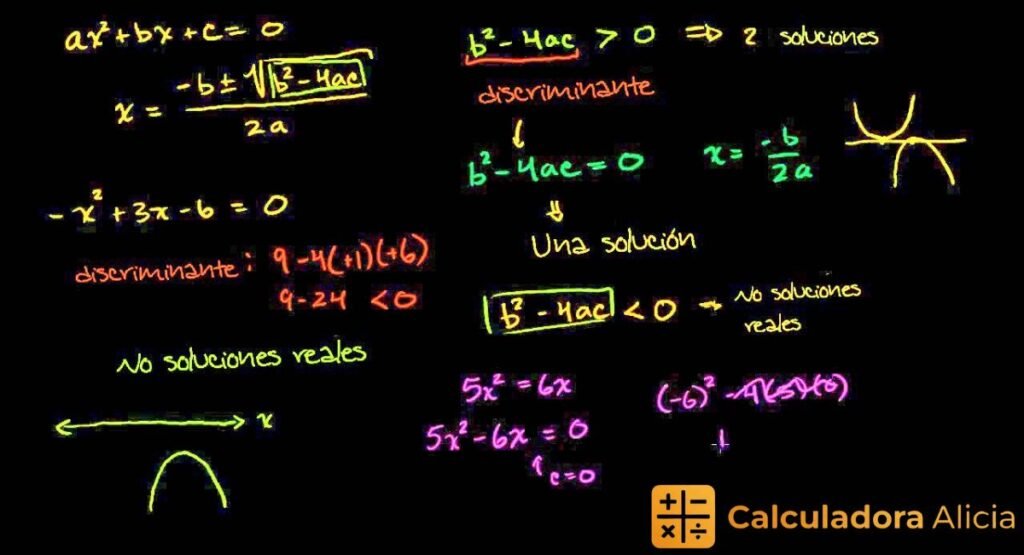 ax² + bx + c = 0
x = -b ± √b² - 4ac / 2a
-x² + 3x - 6 = 0
discriminante: 9 - 4(+1)(+6)
9 - 24 < 0
No soluciones reales
x
b² - 4ac > 0 ⇒ 2 soluciones
discriminante
↓
b² - 4ac = 0 x = -b/2a
⇓
Una solución
b² - 4ac < 0 → No soluciones
reales
5x² = 6x
5x² - 6x = 0
↑ c=0
(-6)² - 4(5)(0)
Calculadora Alicia